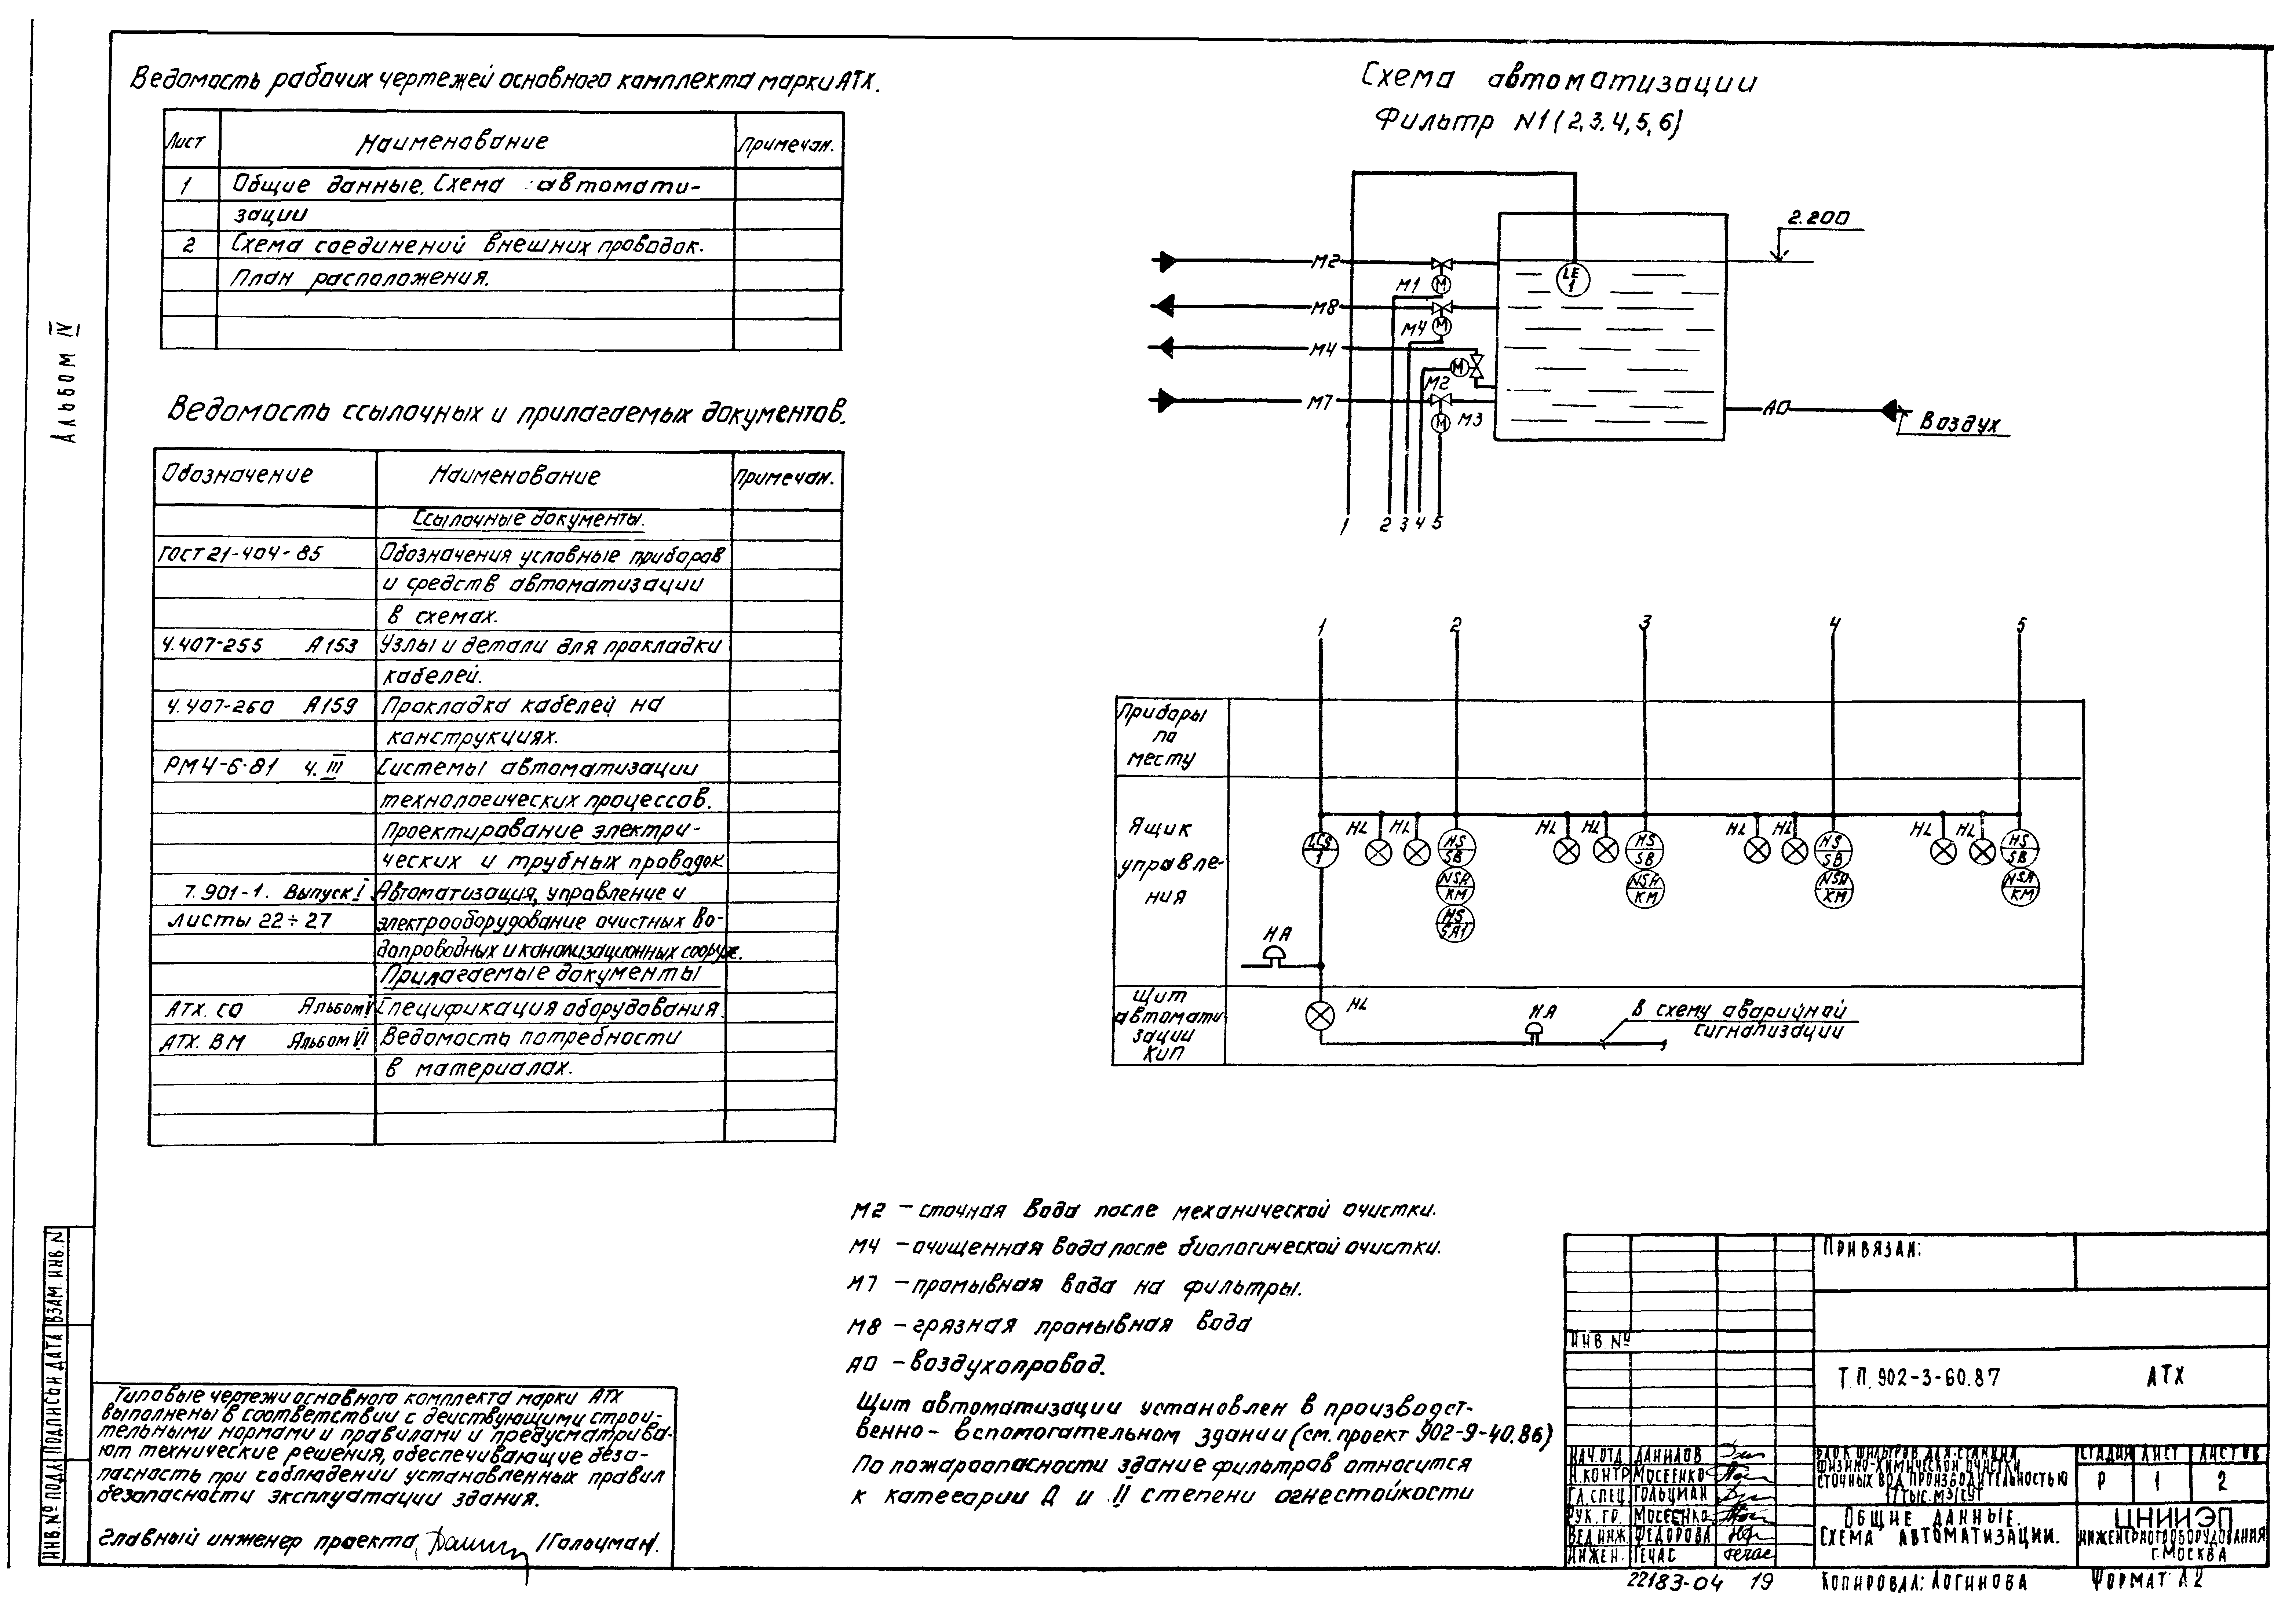 Альбом IV
Ведомость рабочих чертежей основного комплекта марки АТХ.
Лист Наименование Примечан.
1 Общие данные. Схема автомати-
зации
2 Схема соединений внешних проводок.
План расположения.
Ведомость ссылочных и прилагаемых документов.
Обозначение Наименование Примечан.
Ссылочные документы.
ГОСТ 21-404-85 Обозначения условные приборов
и средств автоматизации
в схемах.
4.407-255 А153 Узлы и детали для прокладки
кабелей.
4.407-260 А159 Прокладка кабелей на
конструкциях.
РМ4-6-81 ч. III Системы автоматизации
технологических процессов.
Проектирование электри-
ческих и трубных проводок.
7.901-1. Выпуск I Автоматизация, управление и
листы 22÷27 электрооборудование очистных во-
допроводных и канализационных сооруж.
Прилагаемые документы
АТХ. СО Альбом Спецификация оборудования.
АТХ. ВМ Альбом VI Ведомость потребности
в материалах.
Схема автоматизации
Фильтр N1 (2,3,4,5,6)
2.200
М2
LE
1
М1
М8
М4
М4
М2
М7
М3
М М М М
АО
Воздух
1 2 3 4 5
1 2 3 4 5
Приборы
по
месту
Ящик
управле-
ния
LCS
1
HL HL HS
SB
NSA
KM
HS
SA1
HL HL HS
SB
NSA
KM
HL HL HS
SB
NSA
KM
HL HL HS
SB
NSA
KM
НА
Щит
автомати
зации
КИП
HL
НА
В схему аварийной
сигнализации
М2 – сточная вода после механической очистки.
М4 – очищенная вода после биологической очистки.
М7 – промывная вода на фильтры.
М8 – грязная промывная вода
АО – воздухопровод.
Щит автоматизации установлен в производст-
венно- вспомогательном здании (см. проект 902-9-40.86)
По пожароопасности здание фильтров относится
к категории Д и II степени огнестойкости
Типовые чертежи основного комплекта марки АТХ
выполнены в соответствии с действующими строи-
тельными нормами и правилами и предусматрива-
ют технические решения, обеспечивающие безо-
пасность при соблюдении установленных правил
безопасности эксплуатации здания.
Главный инженер проекта /Гольцман/.
ИНВ.№ ПОДЛ ПОДПИСЬ И ДАТА ВЗАМ ИНВ.N
ПРИВЯЗАН:
ИНВ.№
Т.П. 902-3-60.87 АТХ
НАЧ.ОТД ДАНИЛОВ
Н.КОНТР МОСЕЕНКО
ГЛ.СПЕЦ. ГОЛЬЦМАН
РУК.ГР. МОСЕЕНКО
ВЕД.ИНЖ. ФЕДОРОВА
ИНЖЕН. ГЕЧАС
БЛОК ФИЛЬТРОВ ДЛЯ СТАНЦИИ
ФИЗИКО-ХИМИЧЕСКОЙ ОЧИСТКИ
СТОЧНЫХ ВОД ПРОИЗВОДИТЕЛЬНОСТЬЮ
17 ТЫС. М3/СУТ
СТАДИЯ ЛИСТ ЛИСТОВ
Р 1 2
ОБЩИЕ ДАННЫЕ.
СХЕМА АВТОМАТИЗАЦИИ.
ЦНИИЭП
ИНЖЕНЕРНОГО ОБОРУДОВАНИЯ
Г. МОСКВА
22183-04 19 КОПИРОВАЛ: ЛОГИНОВА ФОРМАТ А2